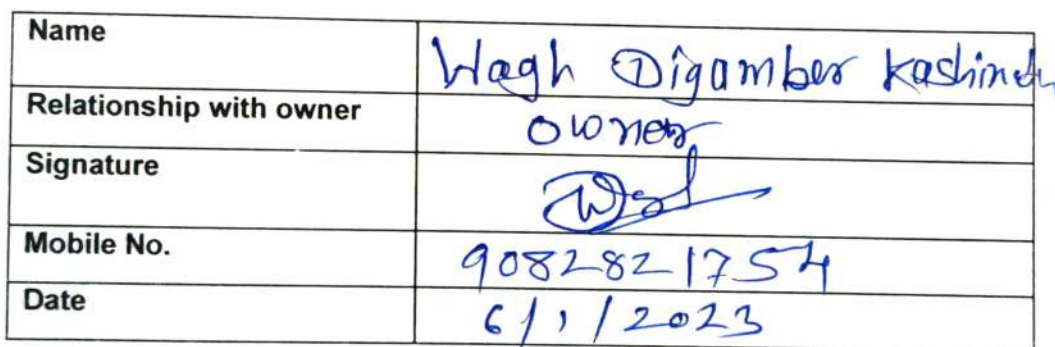 Name Wagh Digamber
Relationship with owner owner
Signature
Mobile No. 9082821754
Date 6/1/2023